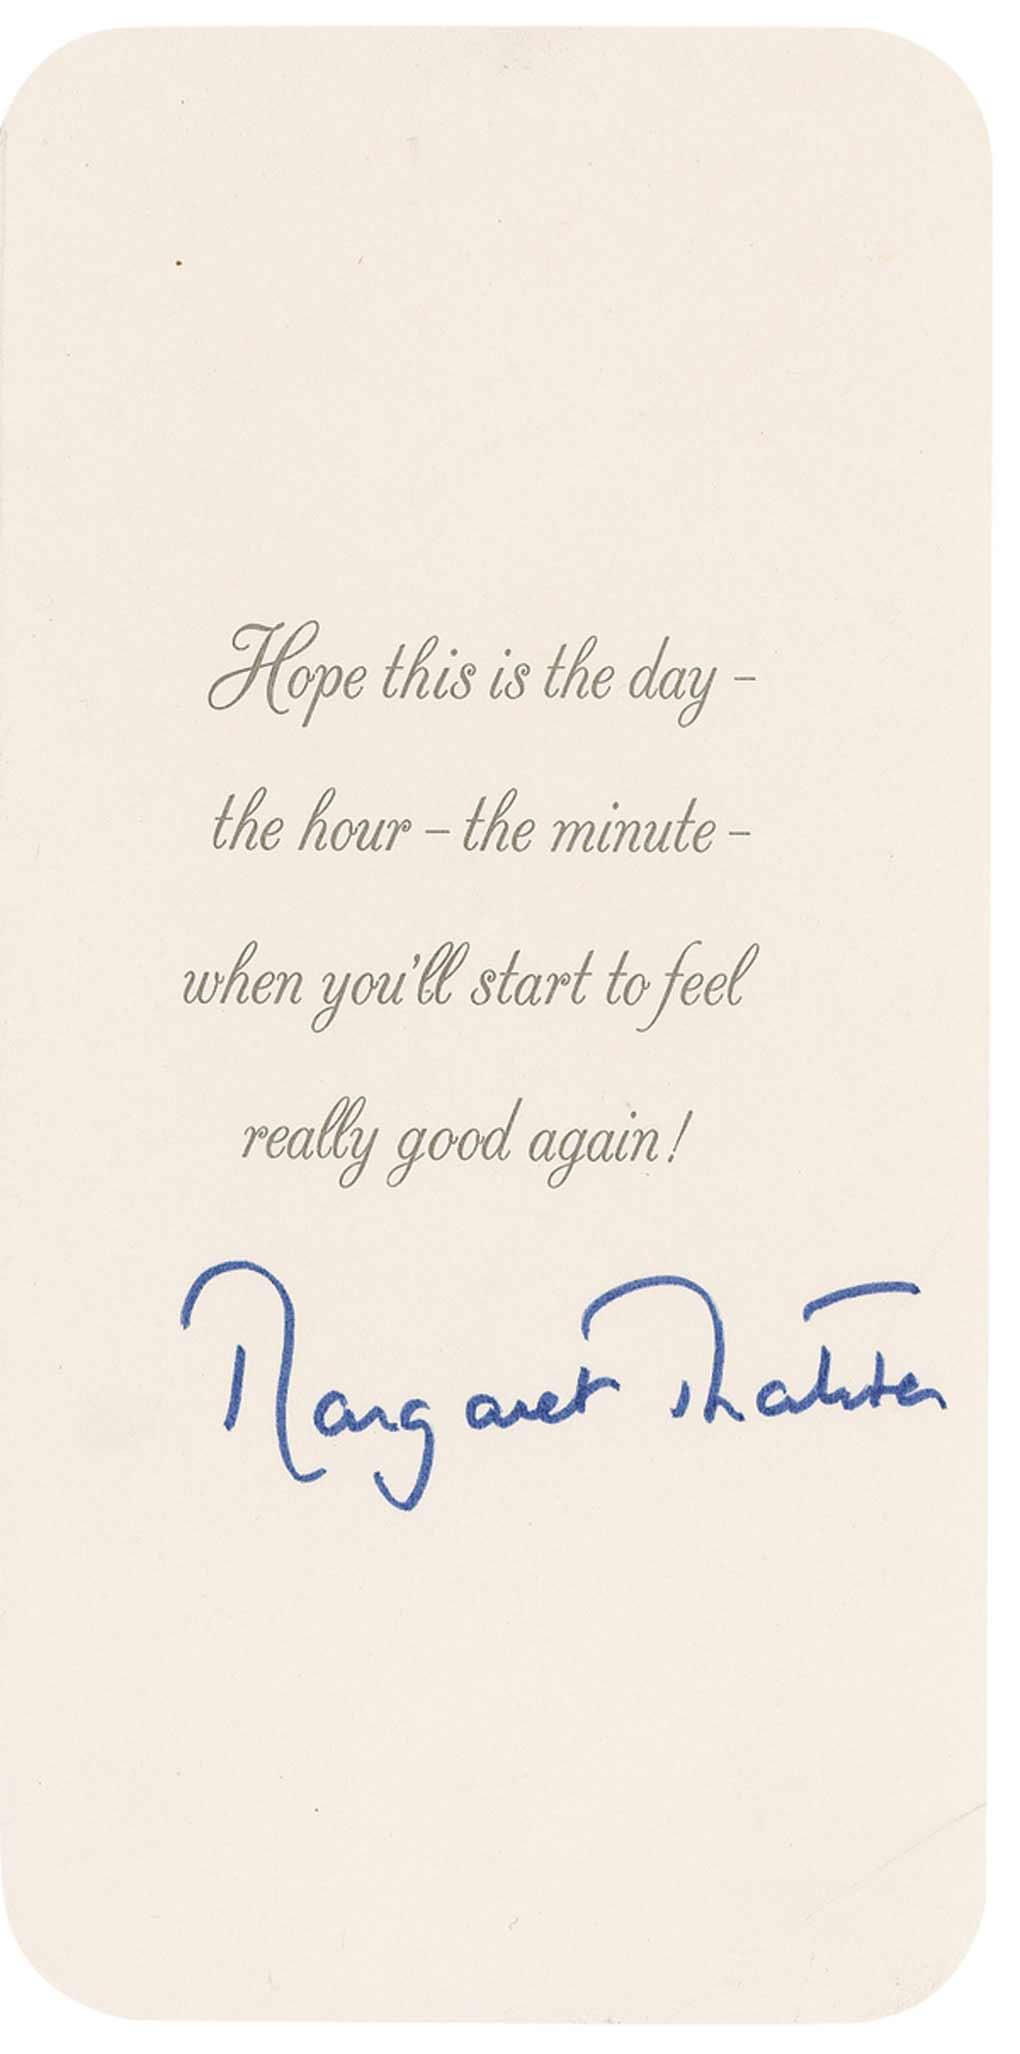 Hope this is the day –
the hour – the minute –
when you'll start to feel
really good again!
Margaret Thatcher